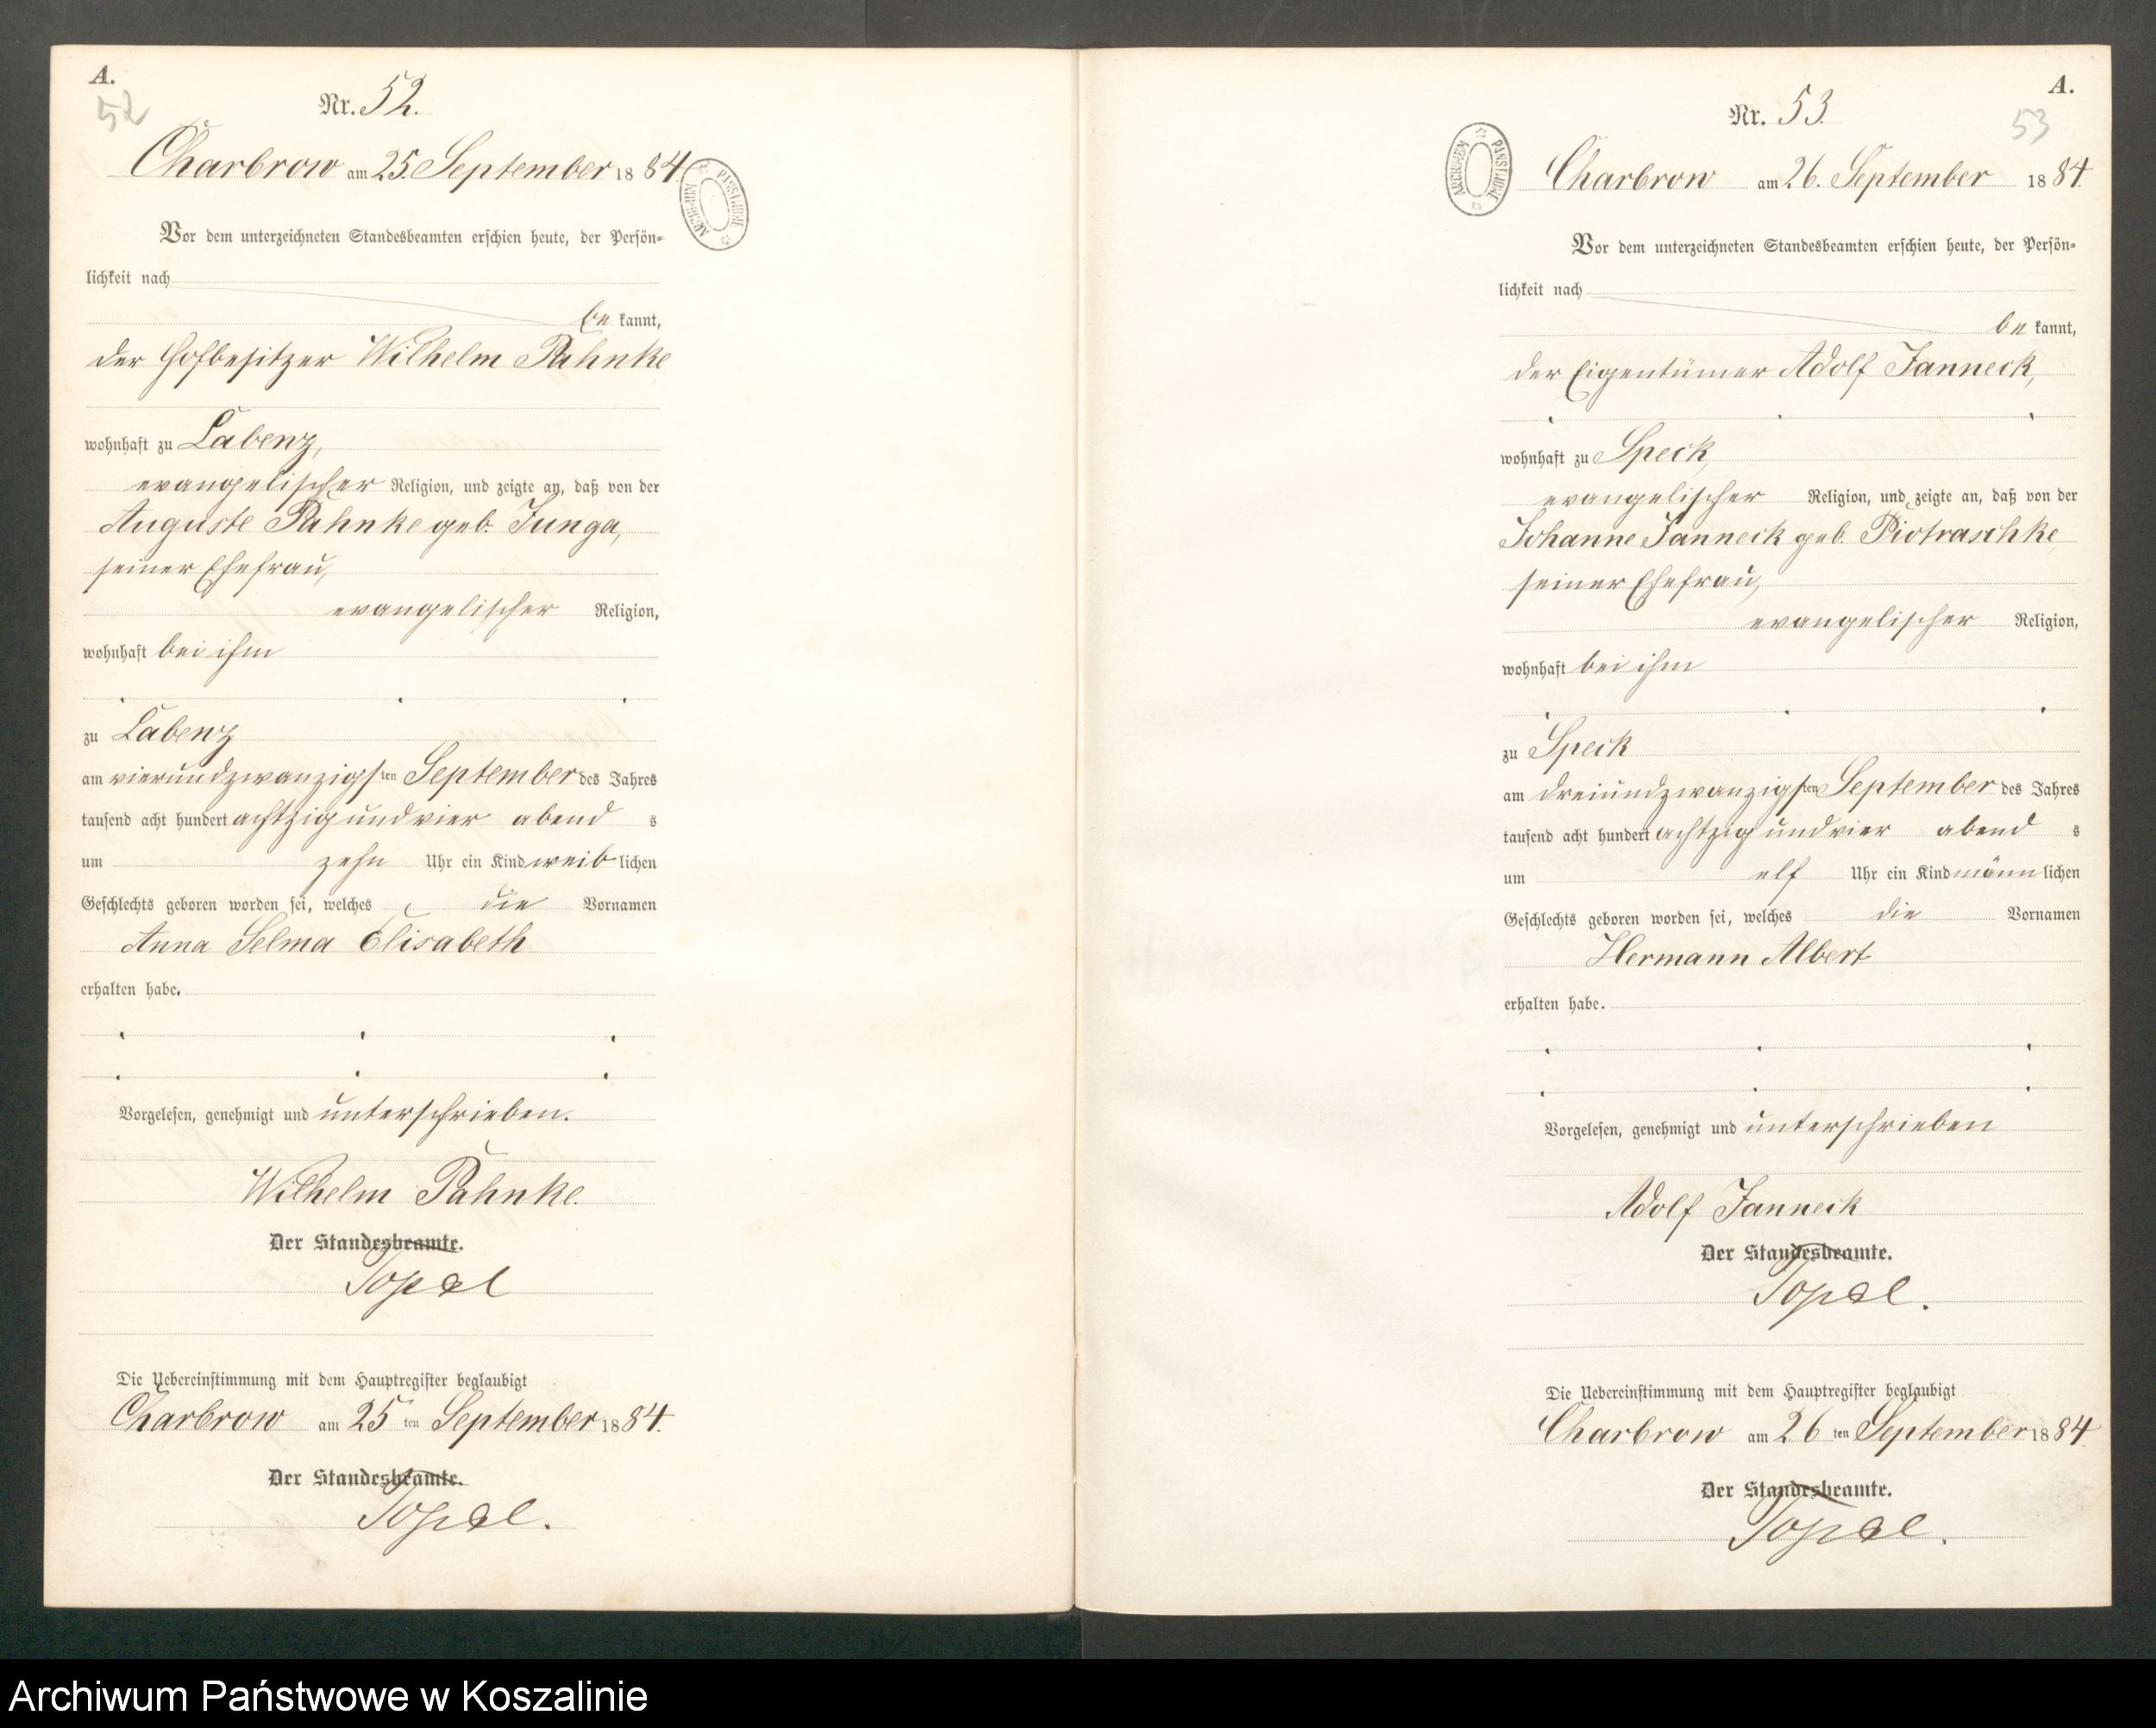 A.
52
Nr. 52.
Charbrow am 25. September 1884.
ARCHIWUM PAŃSTWOWE
Vor dem unterzeichneten Standesbeamten erschien heute, der Persön-
lichkeit nach
be kannt,
der Hofbesitzer Wilhelm Pahnke
wohnhaft zu Labenz,
evangelischer Religion, und zeigte an, daß von der
Auguste Pahnke geb. Junga,
seiner Ehefrau,
evangelischer Religion,
wohnhaft bei ihm
zu Labenz
am vierundzwanzigsten September des Jahres
tausend acht hundert achtzig und vier abend s
um zehn Uhr ein Kind weiblichen
Geschlechts geboren worden sei, welches die Vornamen
Anna Selma Elisabeth
erhalten habe.
Vorgelesen, genehmigt und unterschrieben.
Wilhelm Pahnke.
Der Standesbeamte.
Topel
Die Uebereinstimmung mit dem Hauptregister beglaubigt
Charbrow am 25 ten September 1884.
Der Standesbeamte.
Topel.
A.
53
Nr. 53.
ARCHIWUM PAŃSTWOWE
Charbrow am 26. September 1884.
Vor dem unterzeichneten Standesbeamten erschien heute, der Persön-
lichkeit nach
be kannt,
der Eigentümer Adolf Janneck,
wohnhaft zu Speck,
evangelischer Religion, und zeigte an, daß von der
Johanne Janneck geb. Piotraschke,
seiner Ehefrau,
evangelischer Religion,
wohnhaft bei ihm
zu Speck
am dreiundzwanzigsten September des Jahres
tausend acht hundert achtzig und vier abend s
um elf Uhr ein Kind männlichen
Geschlechts geboren worden sei, welches die Vornamen
Hermann Albert
erhalten habe.
Vorgelesen, genehmigt und unterschrieben
Adolf Janneck
Der Standesbeamte.
Topel.
Die Uebereinstimmung mit dem Hauptregister beglaubigt
Charbrow am 26 ten September 1884.
Der Standesbeamte.
Topel.
Archiwum Państwowe w Koszalinie